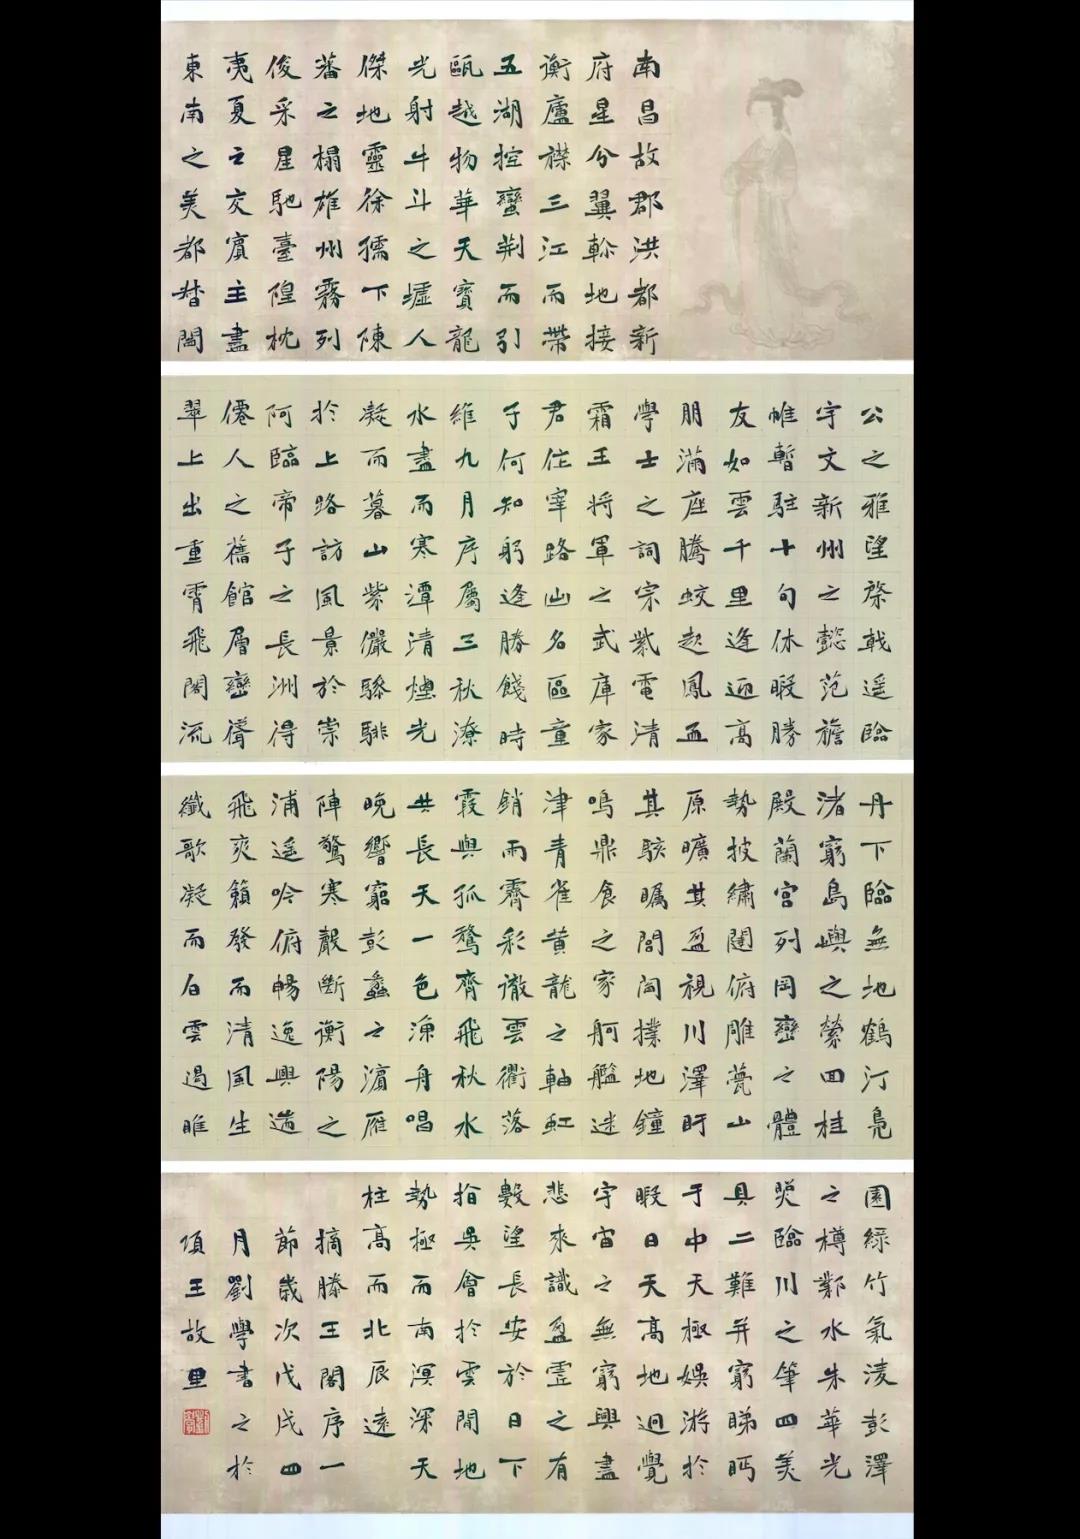 南昌故郡洪都新
府星分翼軫地接
衡廬襟三江而帶
五湖控蠻荊而引
甌越物華天寶龍
光射牛斗之墟人
傑地靈徐孺下陳
蕃之榻雄州霧列
俊采星馳臺隍枕
夷夏之交賓主盡
東南之美都督閻
公之雅望棨戟遥臨
宇文新州之懿范襜
帷暫駐十旬休暇勝
友如雲千里逢迎高
朋滿座騰蛟起鳳孟
學士之詞宗紫電清
霜王將軍之武庫家
君作宰路出名區童
子何知躬逢勝餞時
維九月序屬三秋潦
水盡而寒潭清煙光
凝而暮山紫儼驂騑
於上路訪風景於崇
阿臨帝子之長洲得
僊人之舊館層巒聳
翠上出重霄飛閣流
丹下臨無地鶴汀鳧
渚窮島嶼之縈回桂
殿蘭宮列岡巒之體
勢披繡闥俯雕甍山
原曠其盈視川澤盱
其駭矚閭閻撲地鐘
鳴鼎食之家舸艦迷
津青雀黃龍之軸虹
銷雨霽彩徹雲衢落
霞與孤鶩齊飛秋水
共長天一色漁舟唱
晚響窮彭蠡之濱雁
陣驚寒聲斷衡陽之
浦遥吟俯暢逸興遄
飛爽籟發而清風生
纖歌凝而白雲遏睢
園綠竹氣凌彭澤
之樽鄴水朱華光
照臨川之筆四美
具二難并窮睇眄
于中天極娛游於
暇日天高地迥覺
宇宙之無窮興盡
悲來識盈虛之有
數望長安於日下
指吳會於雲間地
勢極而南溟深天
柱高而北辰遠
摘滕王閣序一
節歲次戊戌四
月劉學書之於
項王故里